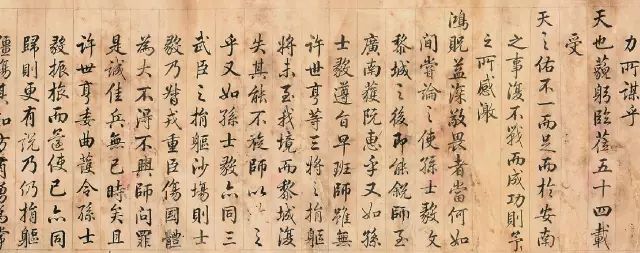 力所謀乎
天也藐躬臨蒞五十四載
受
天之佑不一而足而於安南
之事復不戰而成功則予
之所感激
鴻貺益深敬畏者當何如
間嘗論之使孫士毅
黎城之後即能銳師至
廣南獲阮惠乎又如孫
士毅遵旨早班師雖無
許世亨等三將之捐軀
將未至我境而黎城復
失其能不旋師以之
乎又如孫士毅亦同三
武臣之捐軀沙場則士
毅乃督戎重臣傷國體
為大不得不興師問罪
是誠佳兵無已時矣且
許世亨委曲護令孫士
毅振旅而還使已亦同
歸則更有說乃仍捐軀
疆場其知方有勇為常